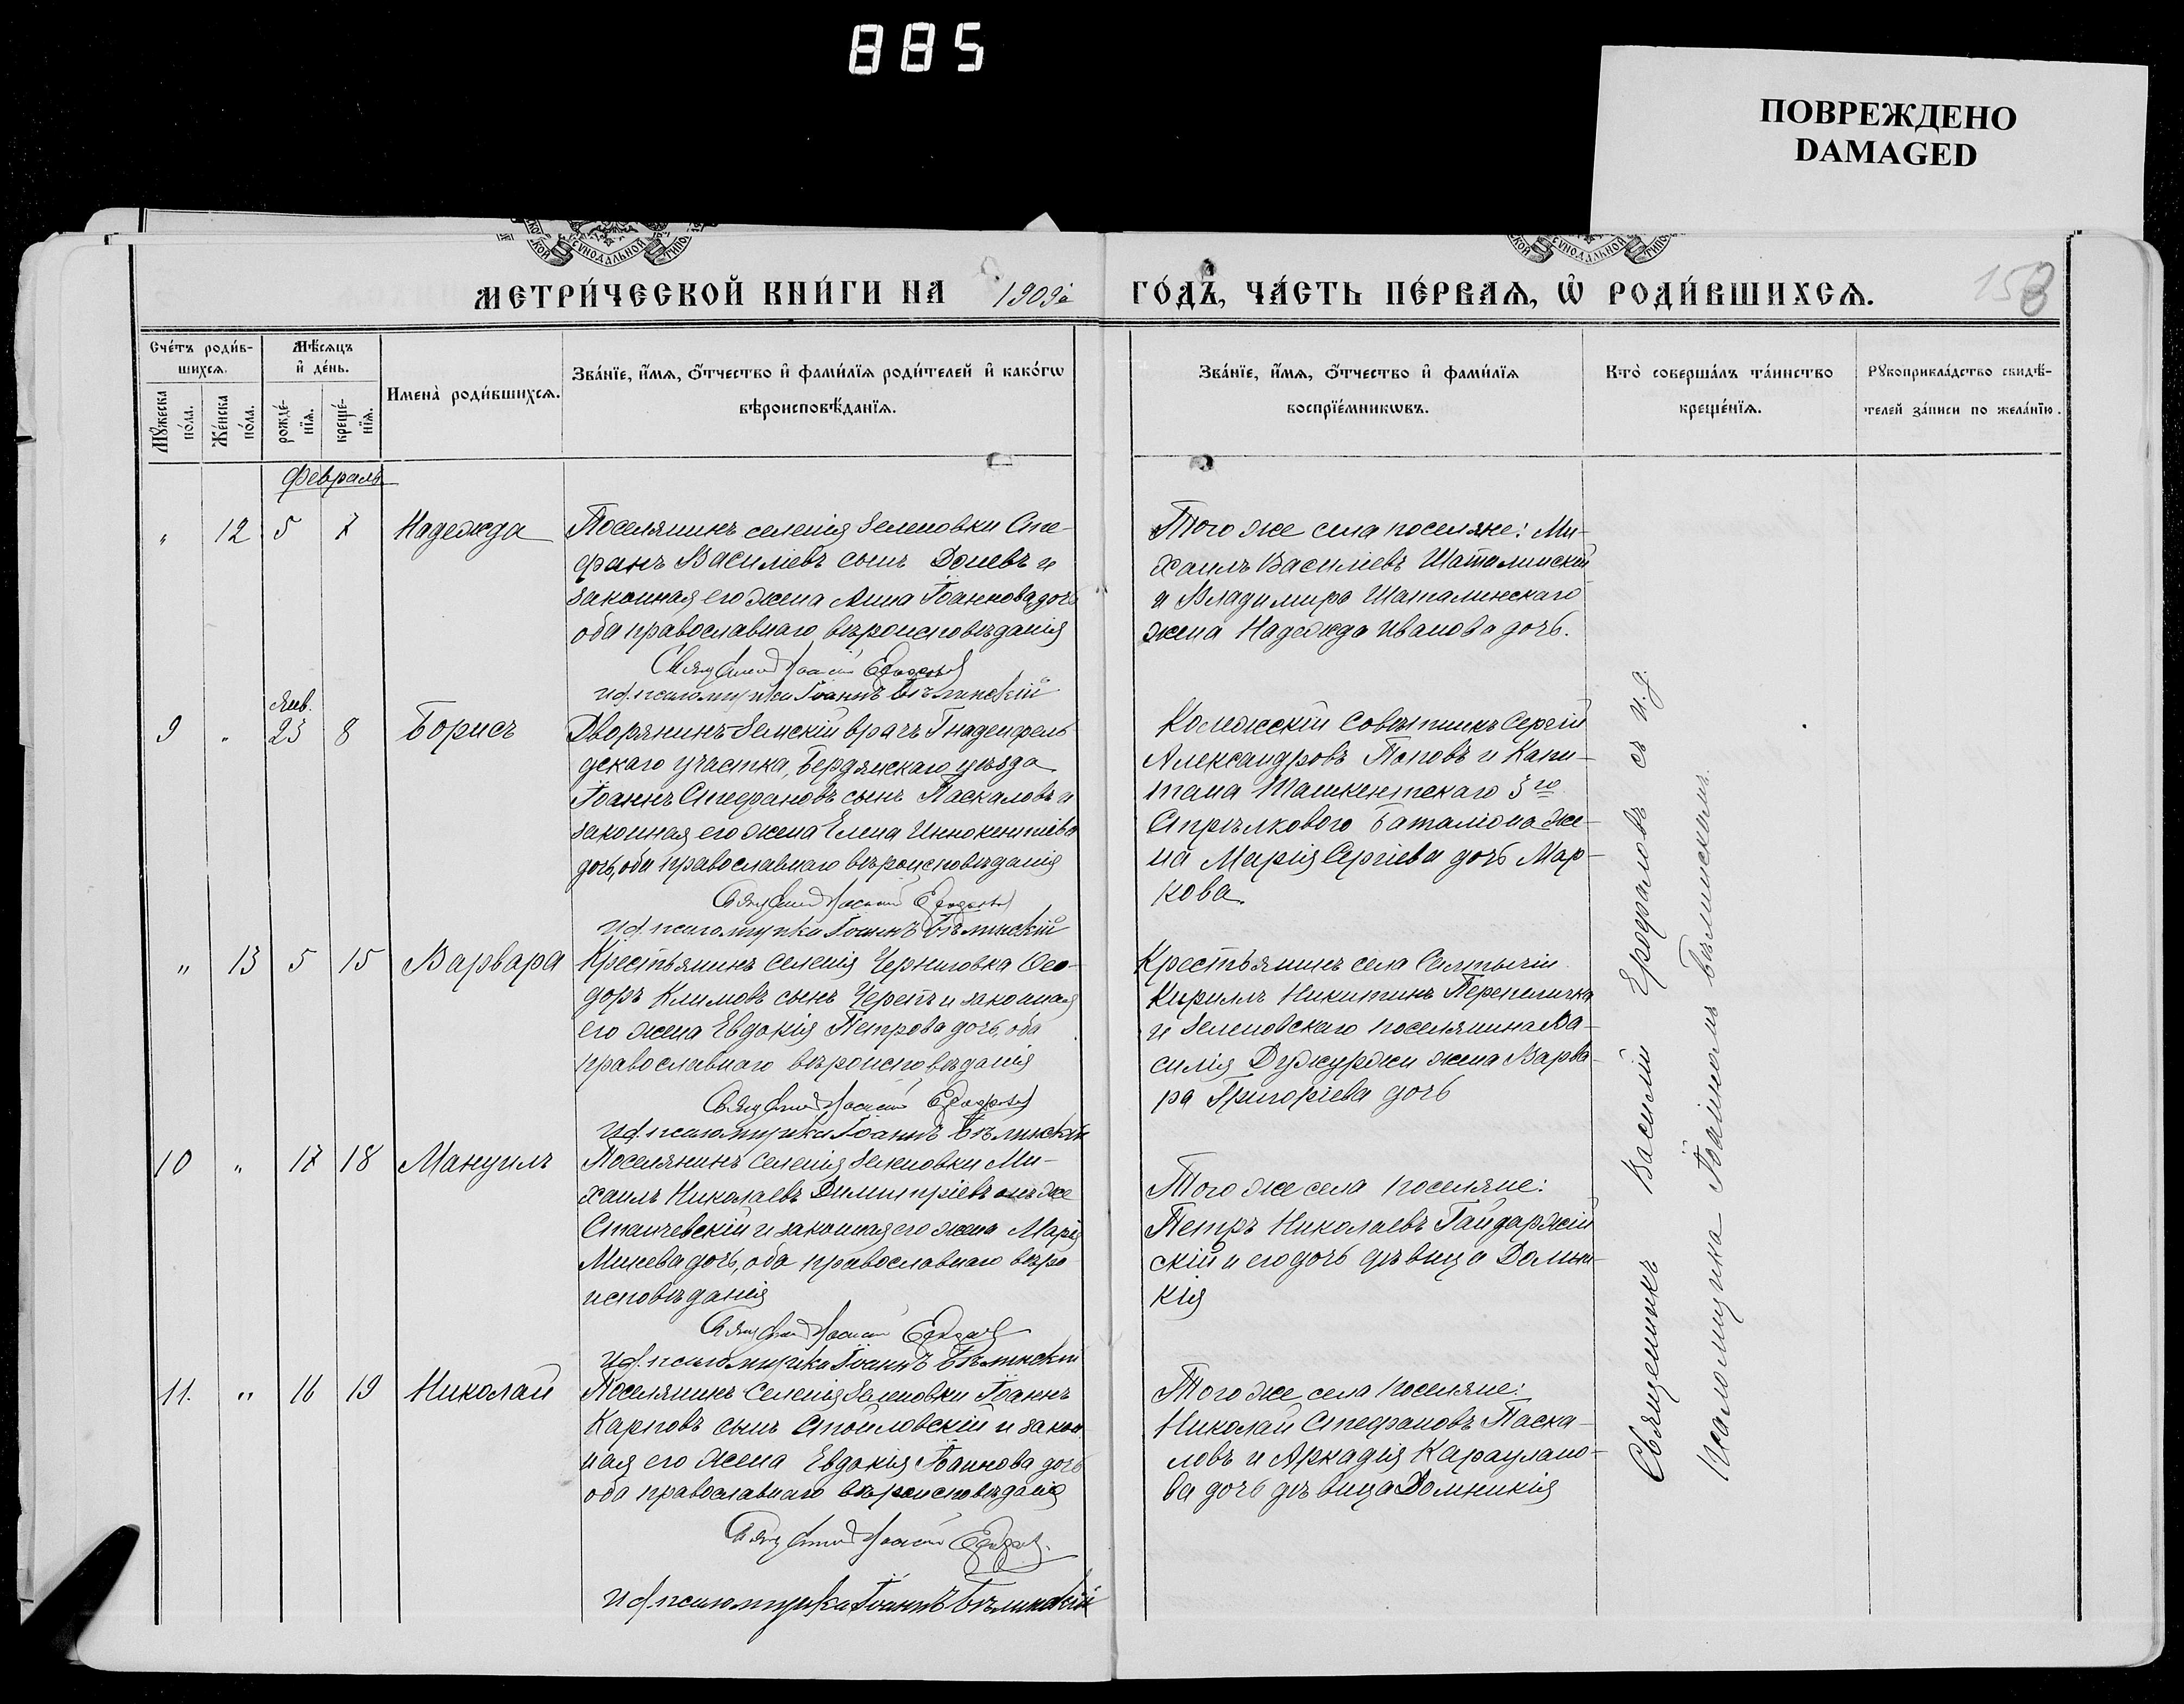 885
ПОВРЕЖДЕНО
DAMAGED
МЕТРИ́ЧЕСКОЙ КНИ́ГИ НА 1909й ГО́ДЪ, ЧА́СТЬ ПЕ́РВАѦ, Ѡ҆ РОДИ́ВШИХСѦ.
158
Сче́тъ роди́в-
шихсѧ.
Мꙋ́жеска
по́ла.
Же́нска
по́ла.
Мѣ́сѧцъ
и҆ де́нь.
рожде́-
нїѧ.
креще́-
нїѧ.
Имена̀ роди́вшихсѧ.
Зва́нїе, и҆́мѧ, ѻ҆́тчество и҆ фами́лїѧ роди́телей и҆ како́гѡ
вѣроисповѣ́данїѧ.
Зва́нїе, и҆́мѧ, ѻ҆́тчество и҆ фами́лїѧ
воспрїе́мникѡвъ.
Кто̀ соверша́лъ та́инство
креще́нїѧ.
Рꙋкоприкла́дство свидѣ́-
телей за́писи по жела́нїю.
Февраль
" 12 5 7 Надежда
Поселянинъ селенія Зеленовки Сте-
фанъ Василіевъ сынъ Доневъ и
законная его жена Анна Іоаннова дочь
оба православнаго вѣроисповѣданія
Священникъ Василій
И.д. псаломщика Іоаннъ Бѣлинскій
Того же села поселяне: Ми-
хаилъ Василіевъ Шаталинскій
и Владимира Шаталинскаго
жена Надежда Иванова дочь.
Янв.
9 " 23 8 Борисъ
Дворянинъ Земскій врачъ Гнаденфель-
дскаго участка, Бердянскаго уѣзда
Іоаннъ Стефановъ сынъ Паскаловъ и
законная его жена Елена Иннокентіева
дочь, оба православнаго вѣроисповѣданія
Священникъ Василій
И.д. псаломщика Іоаннъ Бѣлинскій
Коллежскій Совѣтникъ Сергій
Александровъ Поповъ и Капи-
тана Ташкентскаго 3го
Стрѣлковаго баталіона же-
на Марія Сергіева дочь Мар-
кова.
" 13 5 15 Варвара
Крестьянинъ селенія Черниговка Ѳео-
доръ Климовъ сынъ Черепъ и законная
его жена Евдокія Петрова дочь, оба
православнаго вѣроисповѣданія
Священникъ Василій
И.д. псаломщика Іоаннъ Бѣлинскій
Крестьянинъ села Салтычіи
Кириллъ Никитинъ Перепеличка
и Зеленовскаго поселянина Ва-
силія Дуржуржи жена Варва-
ра Григоріева дочь
10 " 17 18 Мануилъ
Поселянинъ селенія Зеленовки Ми-
хаилъ Николаевъ Димитріевъ онъ же
Станчевскій и законная его жена Марія
Минева дочь, оба православнаго вѣро
исповѣданія
Священникъ Василій
И.д. псаломщика Іоаннъ Бѣлинскій
Того же села поселяне:
Петръ Николаевъ Гайдаржій
скій и его дочь дѣвица Домни-
кія
11. " 16 19 Николай
Поселянинъ селенія Зеленовки Іоаннъ
Карповъ сынъ Стоиловскій и закон
ная его жена Евдокія Іоаннова дочь
оба православнаго вѣроисповѣданія
Священникъ Василій
И.д. псаломщика Іоаннъ Бѣлинскій
Того же села поселяне:
Николай Стефановъ Паска-
ловъ и Аркадія Караулано-
ва дочь дѣвица Домникія
Священникъ Василій Ерофаловъ съ и.д.
Псаломщика Іоанномъ Бѣлинскимъ.